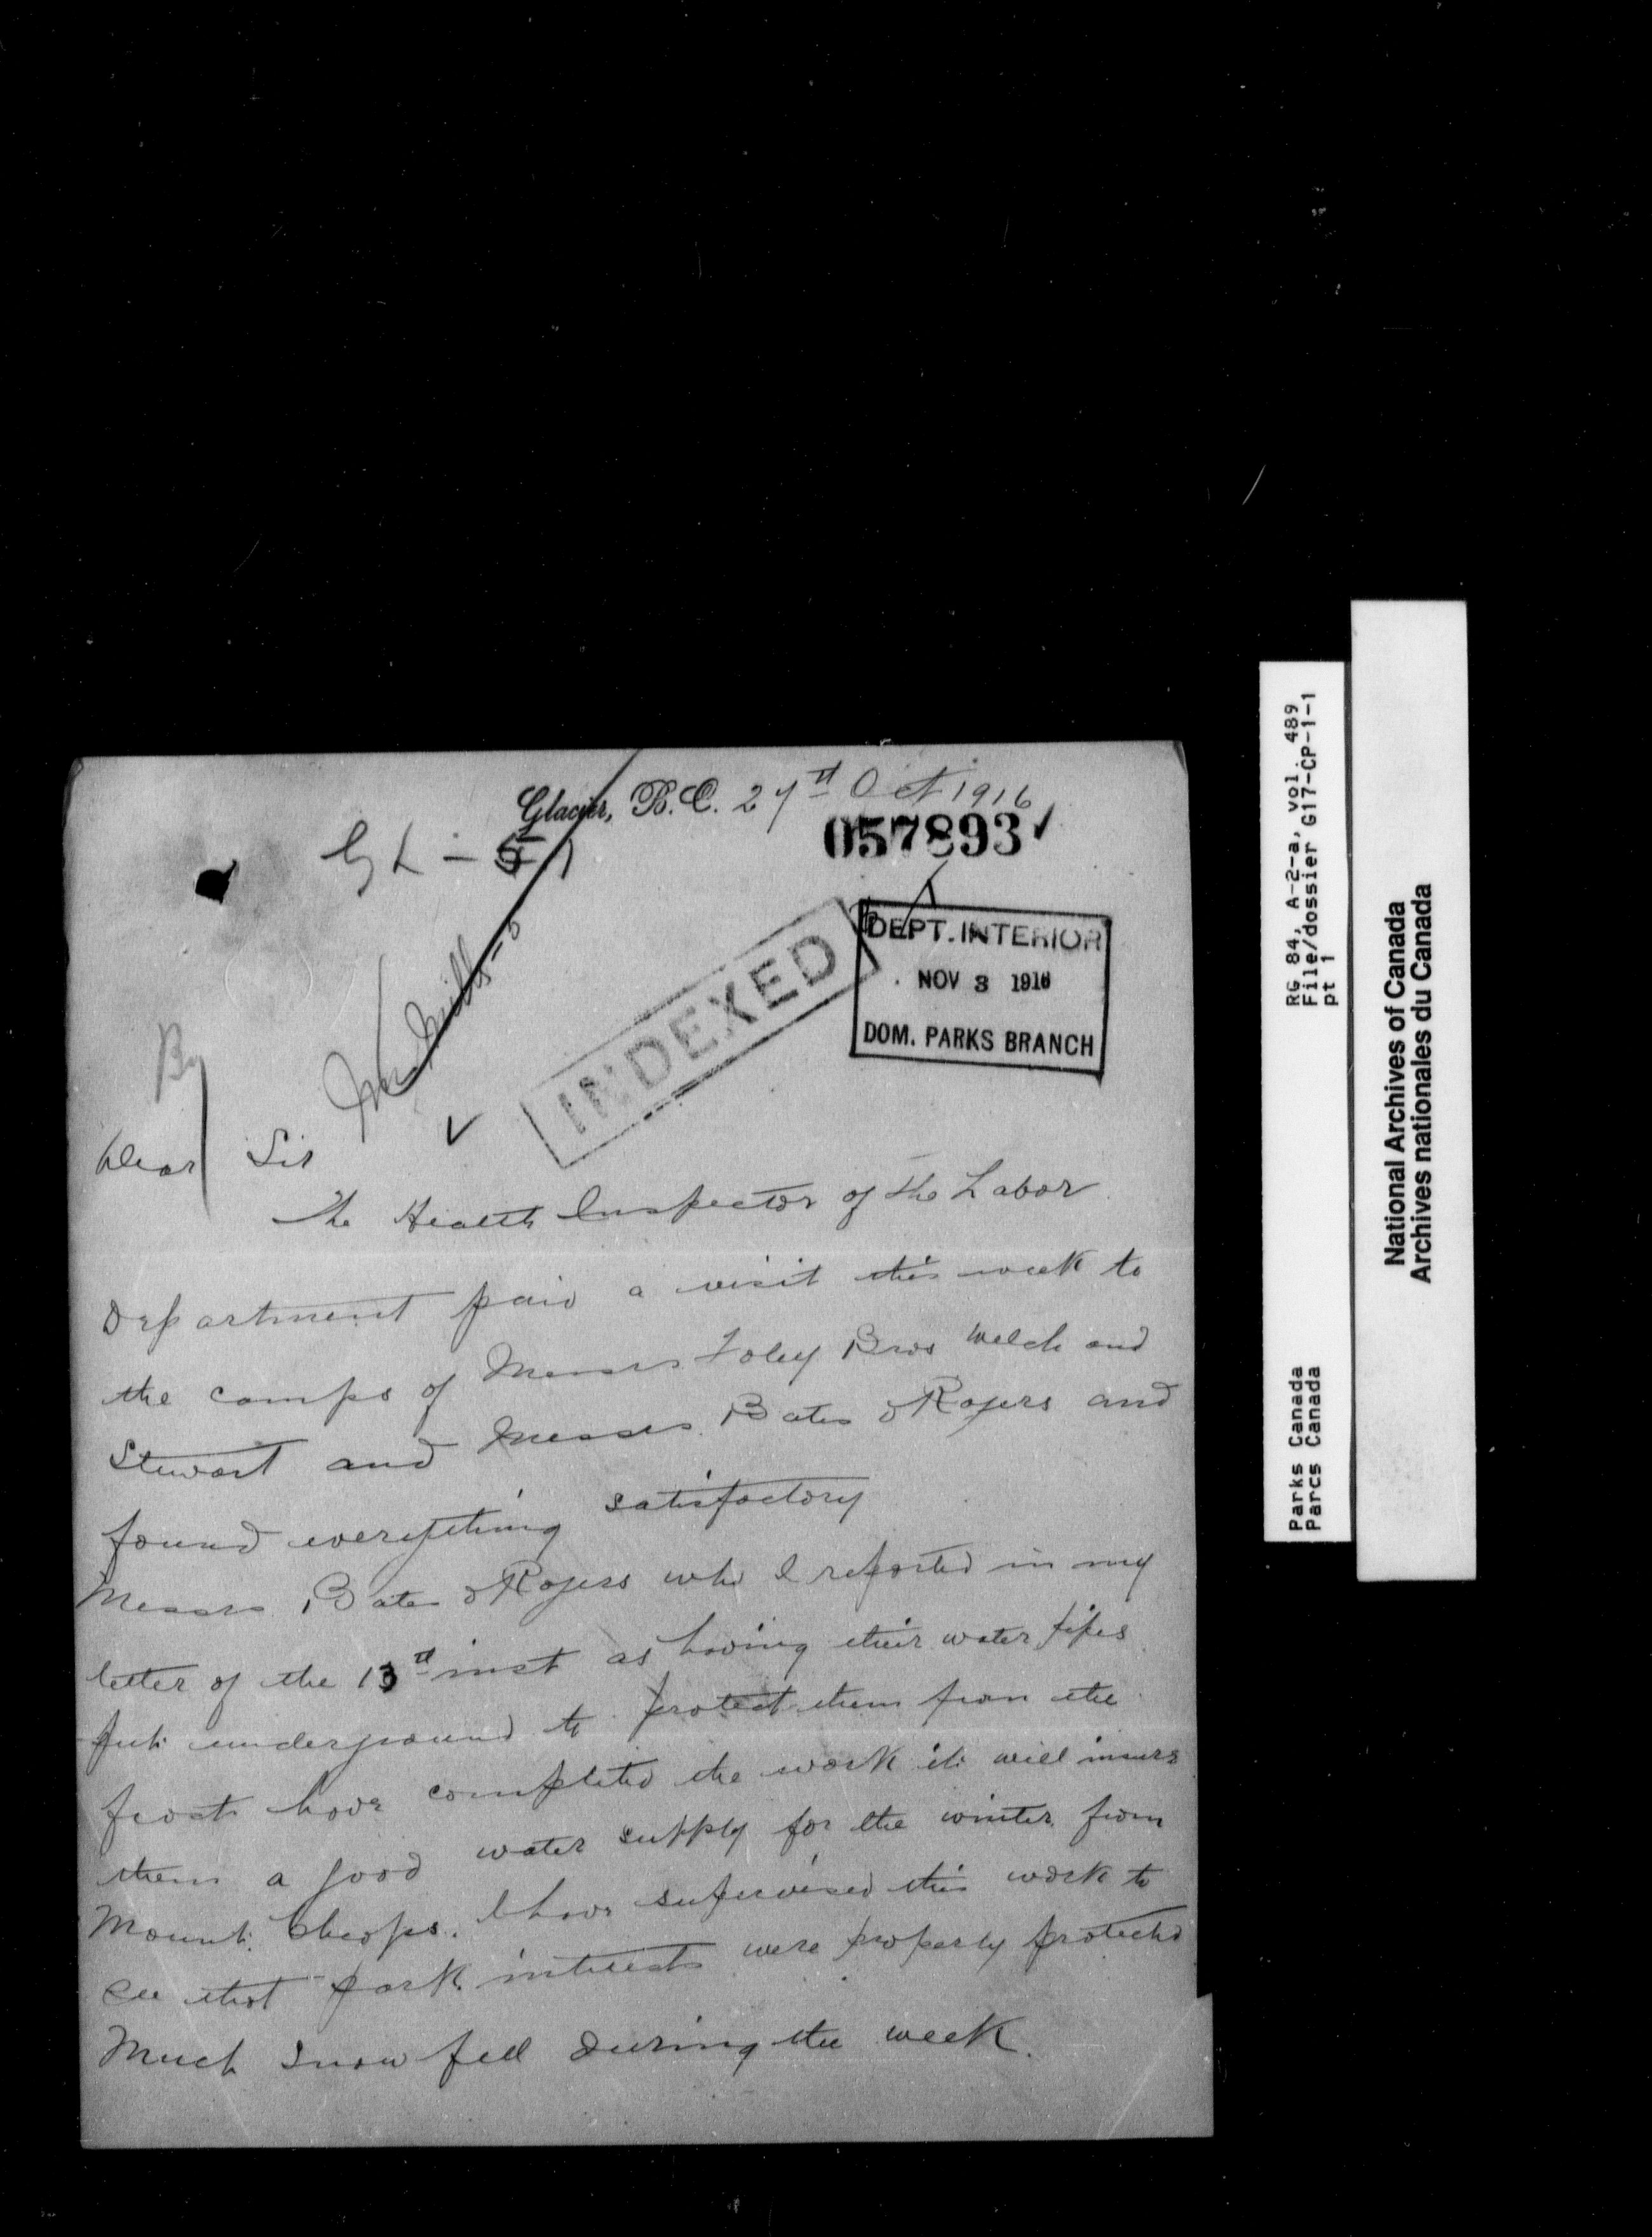 Glacier, B.C. 27th Oct 1916
057893
GL-5
DEPT. INTERIOR
NOV 3 1916
DOM. PARKS BRANCH
INDEXED
By
Dear Sir
The Health Inspector of the Labor
Department paid a visit this week to
the camps of Messrs Foley Bros Welch and
Stewart and Messrs Bates & Rogers and
found everything satisfactory
Messrs Bates & Rogers who I reported in my
letter of the 13th inst as having their water pipes
put underground to protect them from the
frost have completed the work it will insure
them a good water supply for the winter from
Mount Cheops. I have supervised this work to
see that park interests were properly protected
Much snow fell during the week.
RG 84, A-2-a, vol. 489
File/dossier G17-CP-1-1
pt 1
Parks Canada
Parcs Canada
National Archives of Canada
Archives nationales du Canada